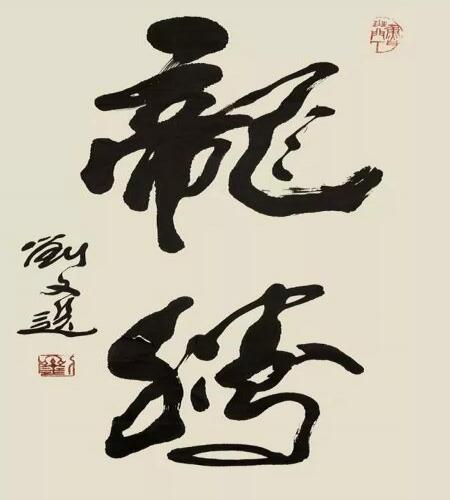 龍
騰
劉文選